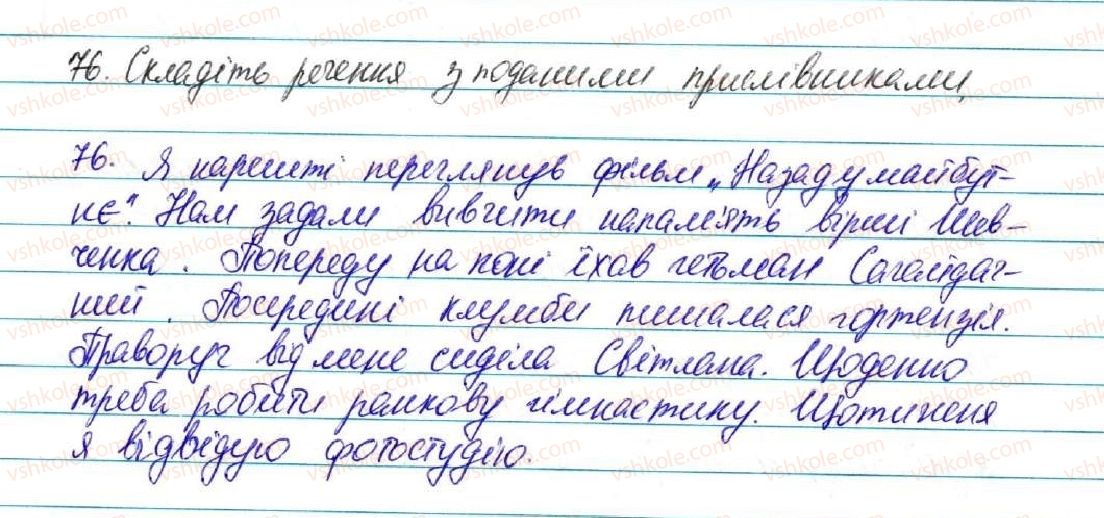 76. Складіть речення з поданими прислівниками,
76. Я нарешті переглянув фільм „Назад у майбут-
нє". Нам задали вивчити напам'ять вірші Шев-
ченка. Попереду на коні їхав гетьман Сагайдач-
ний. Посередині клумби пишалася гортензія.
Праворуч від мене сиділа Світлана. Щоденно
треба робити ранкову гімнастику. Щотижня
я відвідую фотостудію.